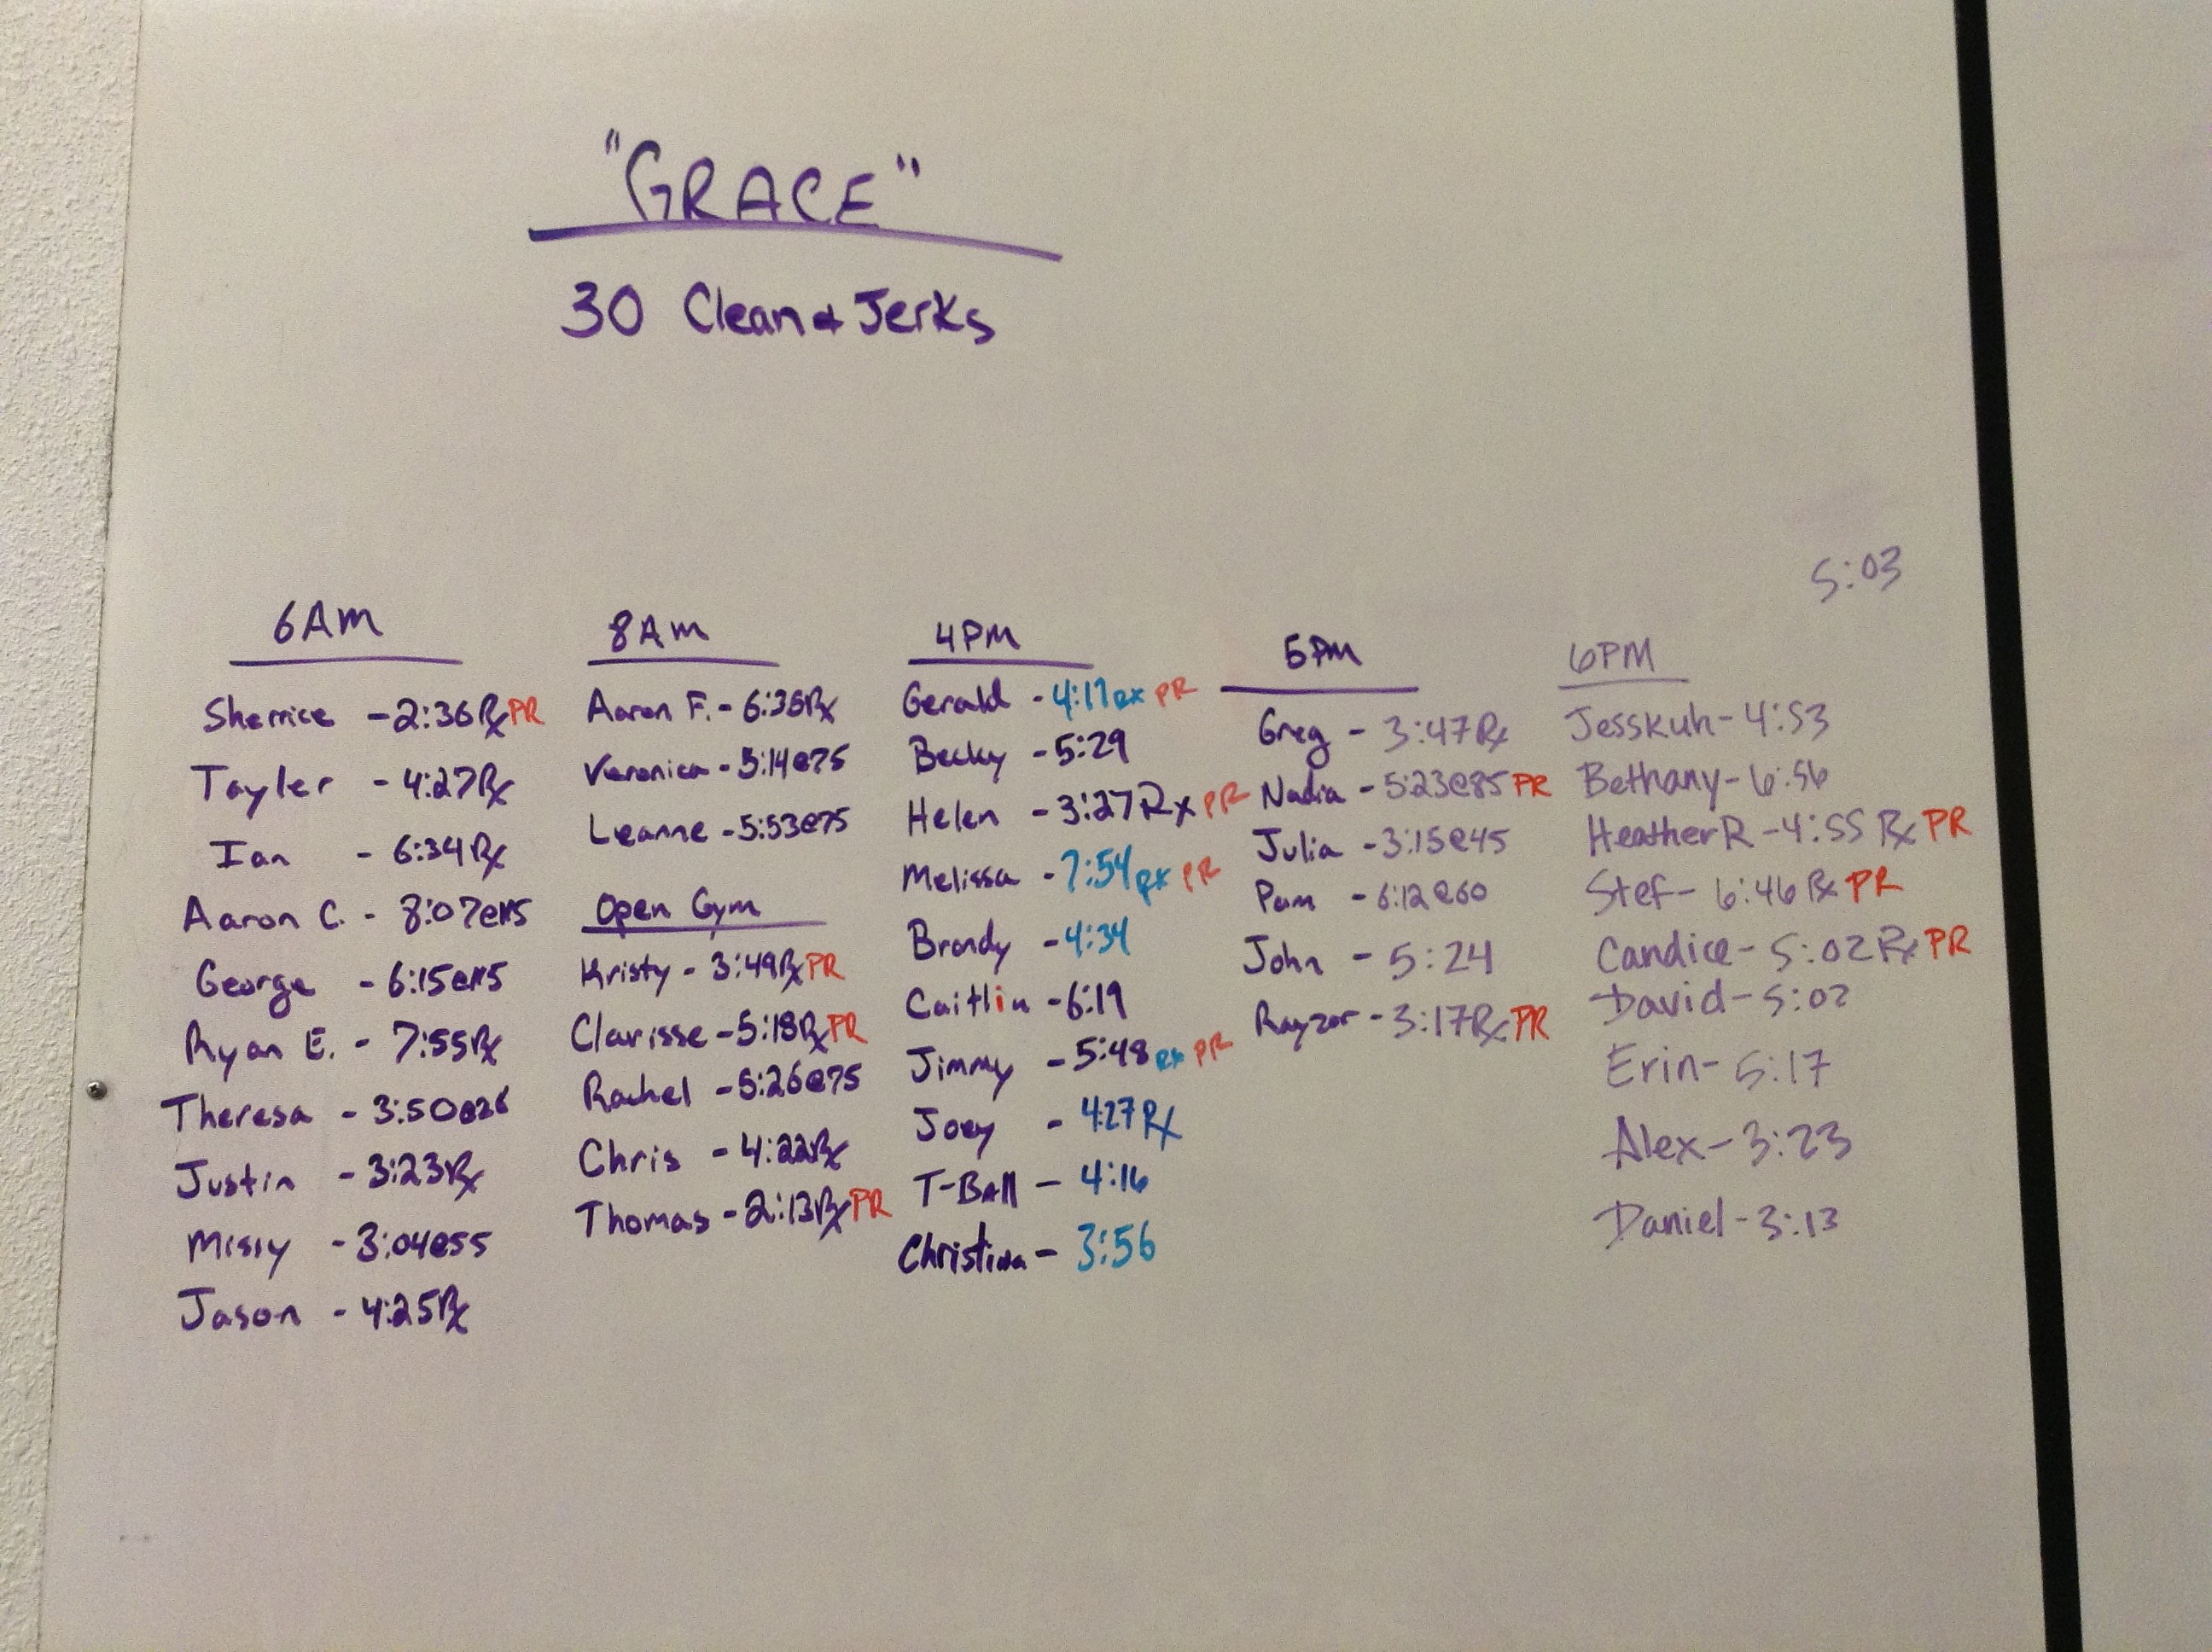 "GRACE"
30 Clean & Jerks
5:03
6AM
Sherrice - 2:36 Rx PR
Tayler - 4:27 Rx
Ian - 6:34 Rx
Aaron C. - 8:07@115
George - 6:15@115
Ryan E. - 7:55 Rx
Theresa - 3:50
Justin - 3:23 Rx
Missy - 3:04@55
Jason - 4:25 Rx
8AM
Aaron F. - Rx
Veronica - @75
Leanne - 5:53@75
Open Gym
Kristy - 3:49 Rx PR
Clarisse - 5:18 Rx PR
Rachel - 5:26@75
Chris - 4:22 Rx
Thomas - 2:13 Rx PR
4PM
Gerald - Rx PR
Becky - 5:29
Helen - 3:27 Rx PR
Melissa - 7:54 Rx PR
Brandy - 4:34
Caitlin - 6:19
Jimmy - 5:48 Rx PR
Joey - 4:27 Rx
T-Ball - 4:16
Christina - 3:56
5PM
Greg - 3:47 Rx
Nadia - 5:23@85 PR
Julia - 3:15@45
Pam - 6:12@60
John - 5:24
Rayzor - 3:17 Rx PR
6PM
JessKuh - 4:53
Bethany - 6:56
Heather R - 4:55 Rx PR
Stef - 6:46 Rx PR
Candice - 5:02 Rx PR
David - 5:02
Erin - 5:17
Alex - 3:23
Daniel - 3:13